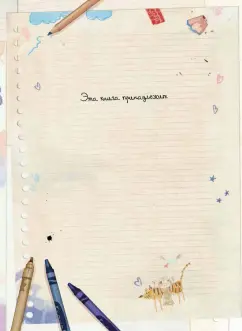 Эта книга принадлежит